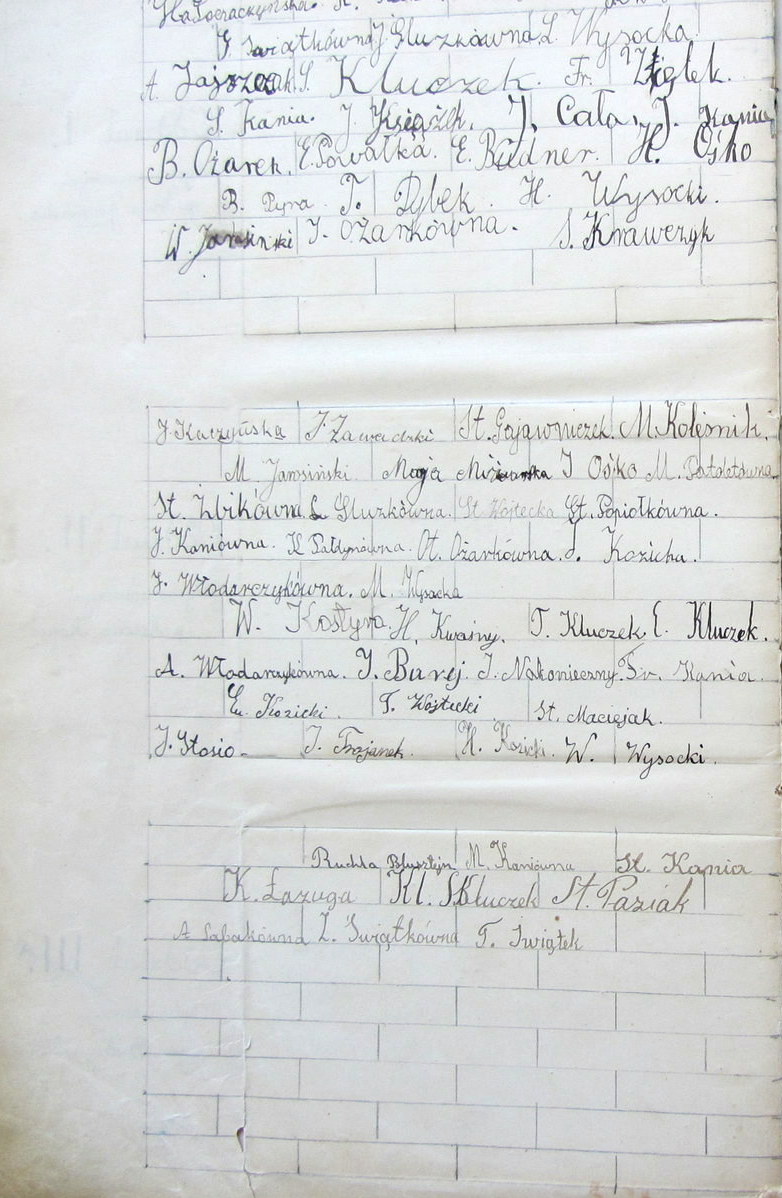 G. Świątkówna J. Gluzkówna L. Wysocka
A. Jajszczak S. Kluczek. Fr. Ziętek.
S. Kania. J. Książek. J. Cała. J. Kania
B. Ożarek. E. Powałka. E. Büdner. H. Ośko
B. Pyra. T. Dybek. H. Wysocki.
W. Jarosiński J. Ożarkówna. S. Krawczyk
J. Kaczyńska J. Zawadzki St. Gajowniczek. M. Koleśnik.
M. Jarosiński. J Ośko M.
St. Zbikówna L Gluzkówna. St. Wójtecka St. Popiołkówna.
J. Kaniówna. K Pałdynówna. Ożarkówna. J. Kozicha.
J. Włodarczykówna. M. Wysocka
W. Kostyra. H. Kwaśny. T. Kluczek E. Kluczek.
A. Włodarczykówna. J. Barej. J. Nakonieczny. Kania.
Eu. Kozicki. T. Wójtecki St. Maciejak.
J. Stasio J. Trojanek. H. Kozicki. W. Wysocki.
Ruchla Blusztejn M. Kaniówna St. Kania
K. Łazuga Kl. S. Kluczek St. Paziak
A Sabakówna Z. Świątkówna T. Świątek